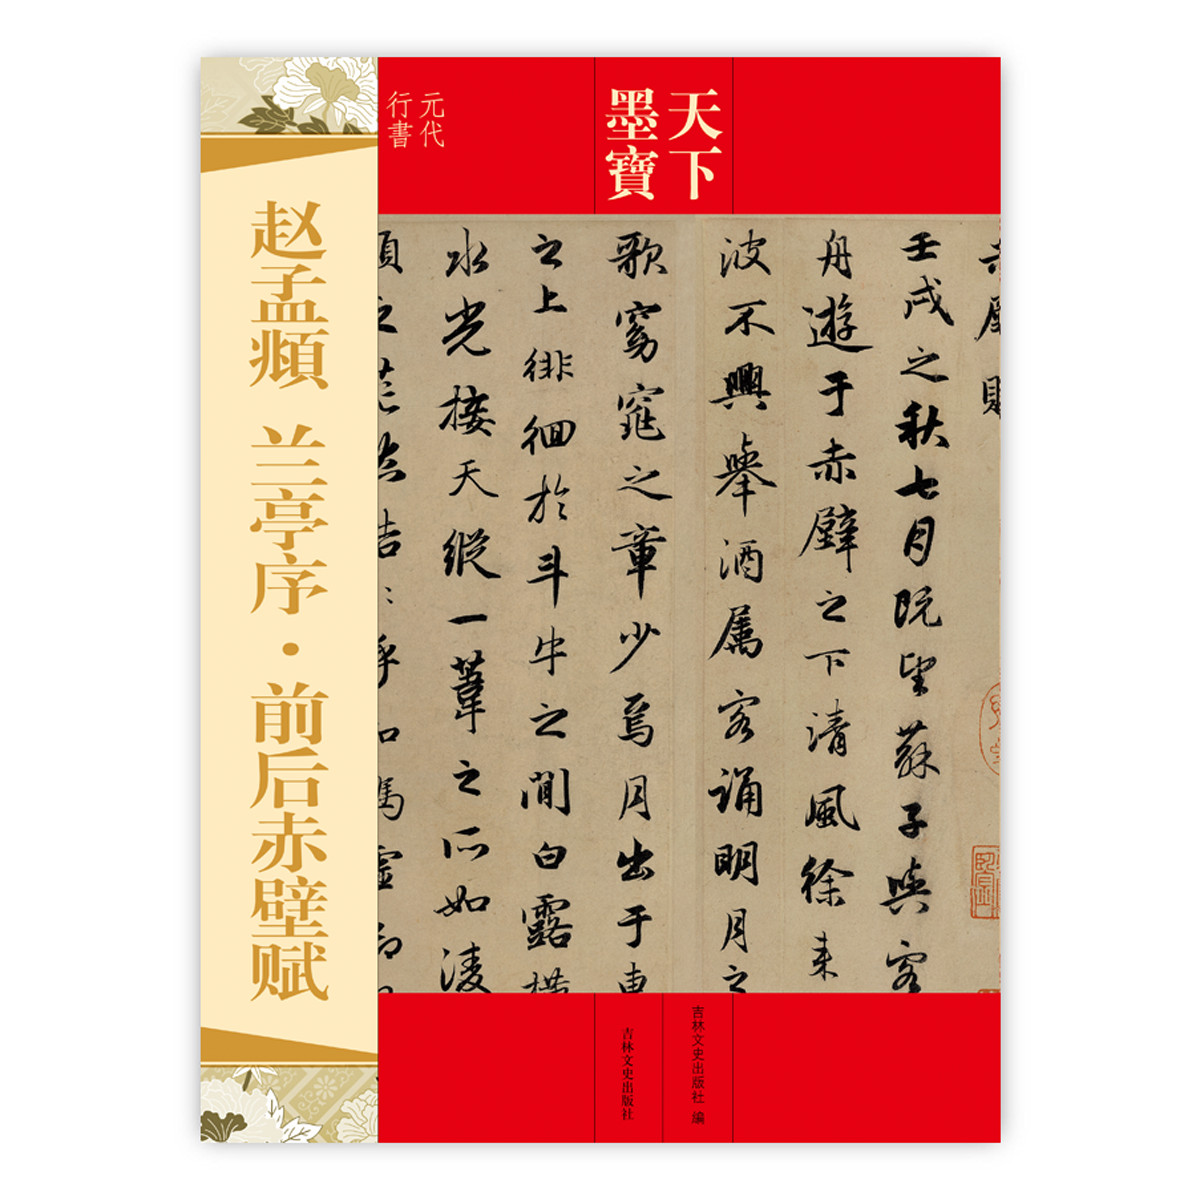 天下
墨寶
元代
行書
赵孟頫 兰亭序·前后赤壁赋
赤壁賦
壬戌之秋七月既望蘇子與客
舟遊于赤壁之下清風徐来
波不興舉酒属客誦明月之
歌窈窕之章少焉月出于東
之上徘徊於斗牛之間白露横
水光接天縱一葦之所如凌
吉林文史出版社 编
吉林文史出版社